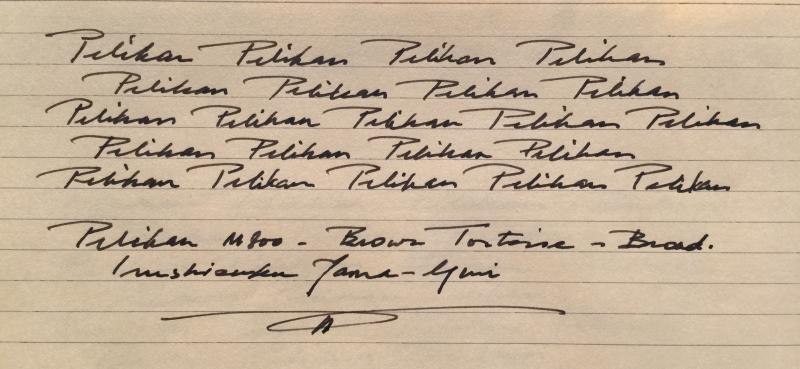 Pelikan Pelikan Pelikan Pelikan
Pelikan Pelikan Pelikan Pelikan
Pelikan Pelikan Pelikan Pelikan Pelikan
Pelikan Pelikan Pelikan Pelikan
Pelikan Pelikan Pelikan Pelikan Pelikan
Pelikan M800 - Brown Tortoise - Broad.
Yama-Guri